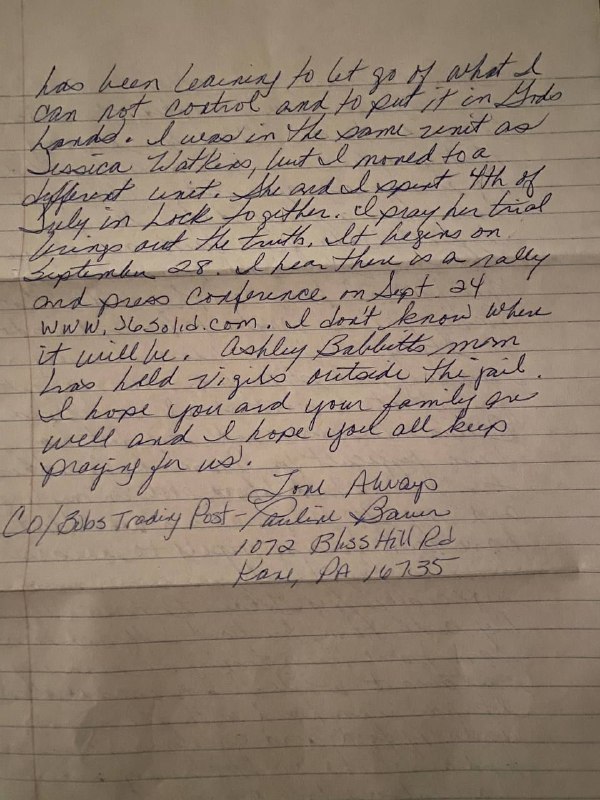 has been learning to let go of what I
can not control and to put it in Gods
hands. I was in the same unit as
Jessica Watkins, but I moved to a
different unit. She and I spent 4th of
July in Lock together. I pray her trial
brings out the truth. It begins on
September 28. I hear there is a rally
and press conference on Sept 24
www.J6Solid.com. I don't know where
it will be. Ashley Babbetts mom
has held vigils outside the jail.
I hope you and your family are
well and I hope you all keep
praying for us.
Love Always
CO/Bobs Trading Post - Pauline Bauer
1072 Bliss Hill Rd
Kane, PA 16735